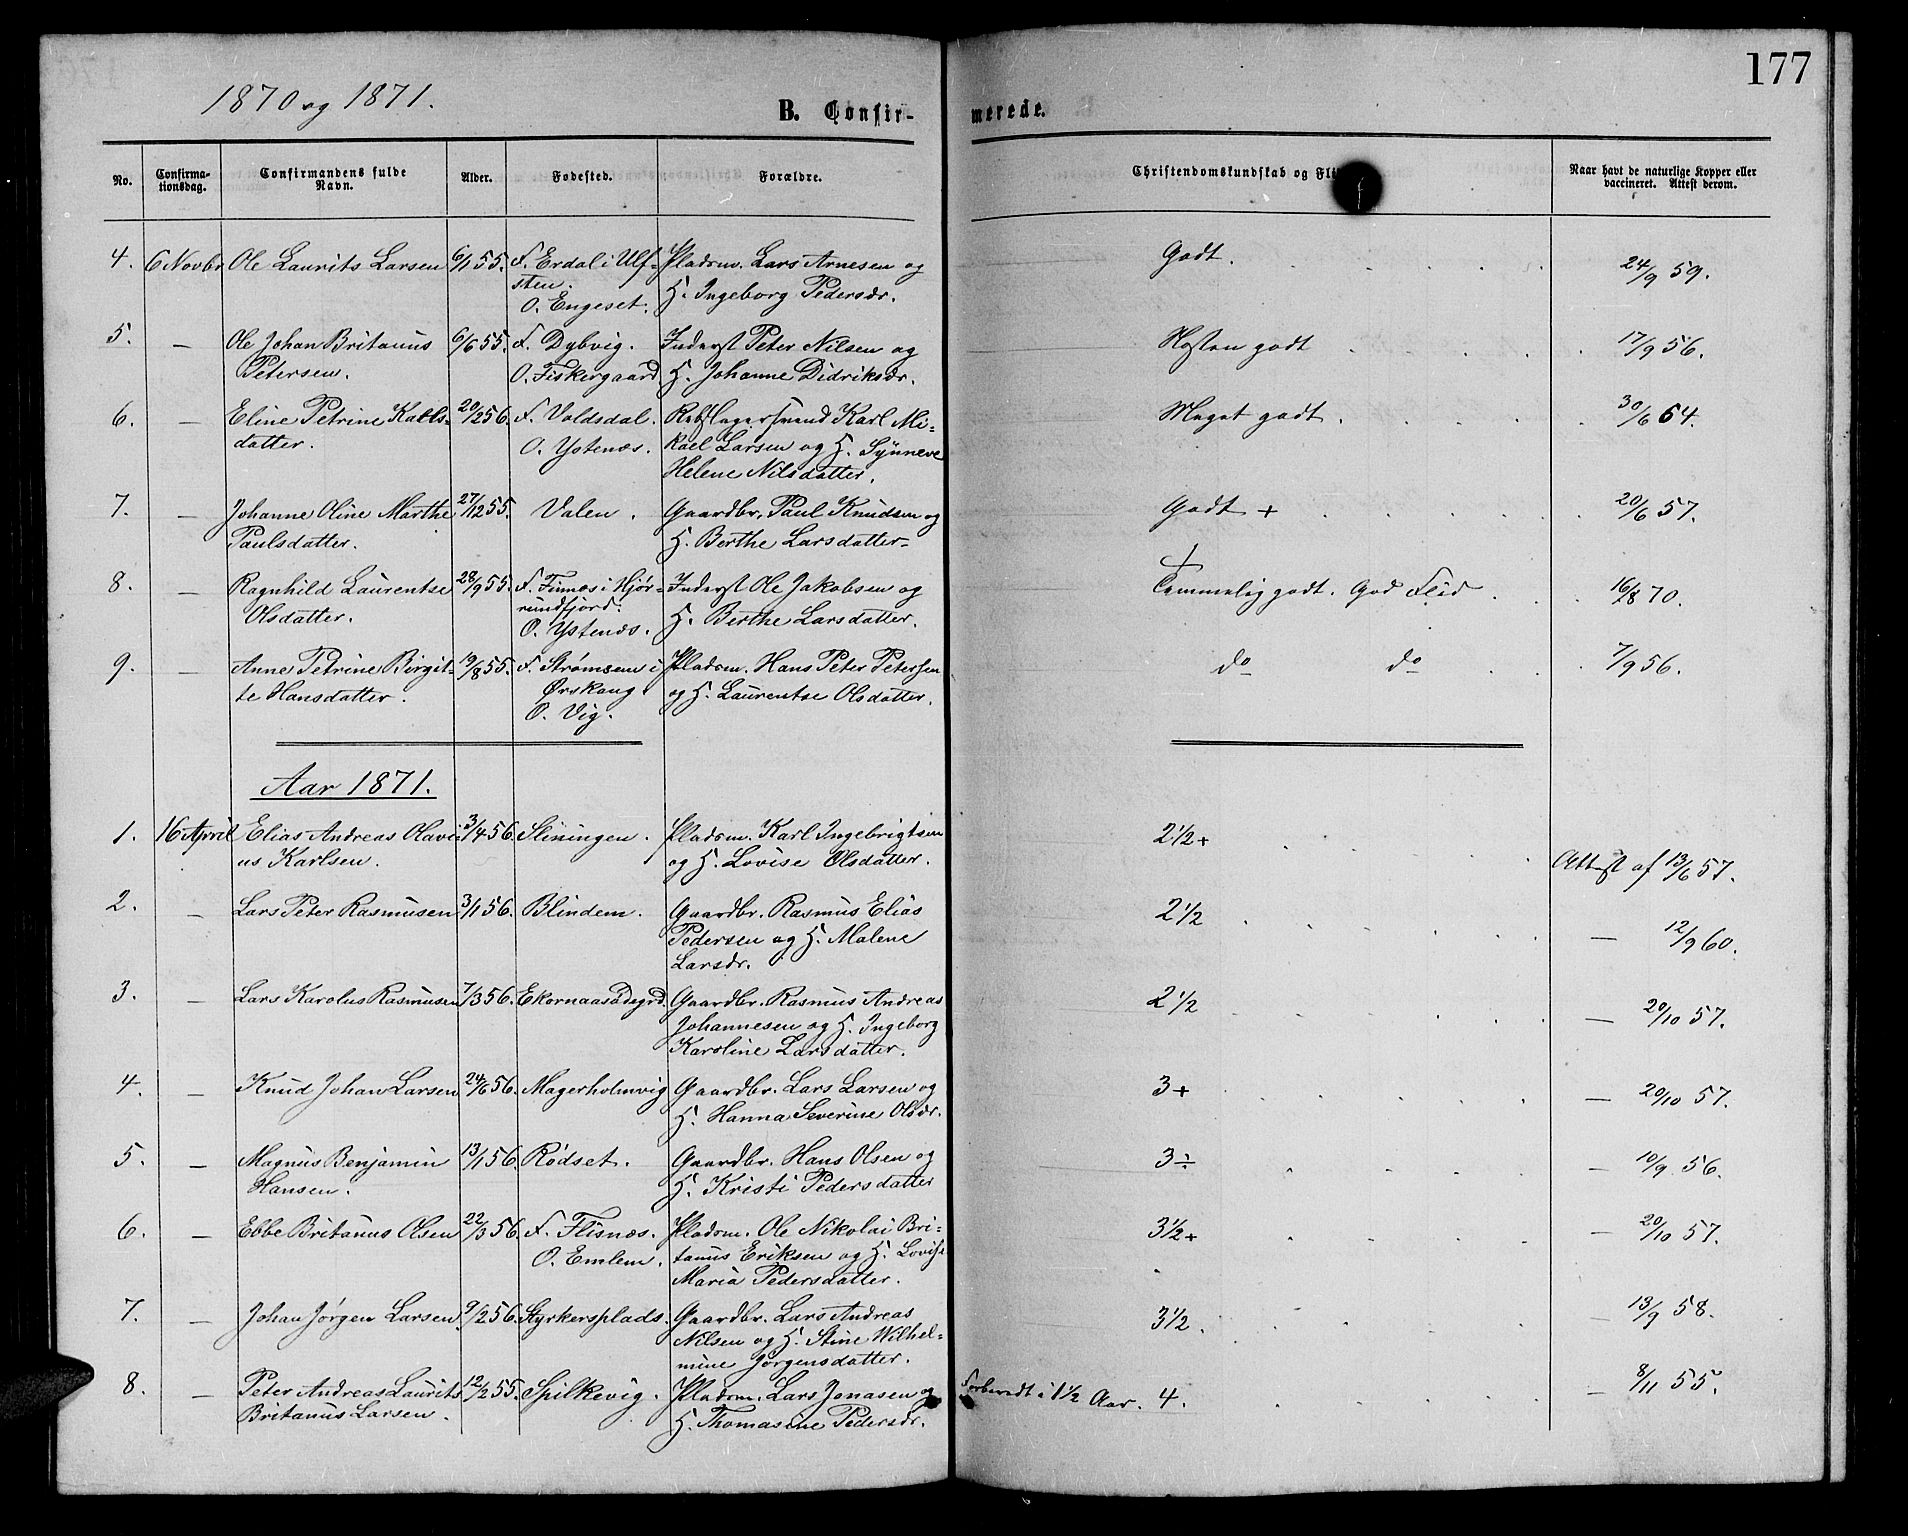 177
1870 og 1871.
B. Confirmerede.
No. Confirmationsdag. Confirmandens fulde Navn. Alder. Fødested. Forældre. Christendomskundskab og Fli Naar havt de naturlige Kopper eller vaccineret. Attest derom.
4. 6 Novbr Ole Laurits Larsen 6/1 55. F. Erdal i Ulf- Pladsm. Lars Arnesen og Godt. 24/9 59.
sten. H. Ingeborg Pedersdr.
O. Engeset.
5. — Ole Johan Britanus 6/6 55. F. Dybvig. Inderst Peter Nilsen og Næsten godt 17/9 56.
Petersen. O. Fiskergaard H. Johanne Didriksdr.
6. — Eline Petrine Karls- 20/2 56. F. Valdsdal. Rebslagersvend Karl Mi- Meget godt. 30/6 64.
datter. O. Ystenæs. kael Larsen og H. Synneve
Helene Nilsdatter.
7. — Johanne Oline Marthe 27/12 55. Valen. Gaardbr. Paul Knudsen og Godt + 20/6 57.
Paulsdatter. H. Berthe Larsdatter
8. — Ragnhild Laurentse 28/9 55. F. Finnæs i Hjør- Inderst Ole Jakobsen og Temmelig godt. God Flid 16/8 70.
Olsdatter. rundfjord. H. Berthe Larsdatter.
O. Ystenæs.
9. — Anne Petrine Birgit- 19/8 55. F. Strømsem i Pladsm. Hans Peter Petersen do do 7/9 56.
te Hansdatter. Ørskoug og H. Laurentse Olsdatter.
O. Vig.
Aar 1871.
1. 16 April Elias Andreas Olavi- 3/4 56. Slinningen. Pladsm. Karl Ingebrigtsen 2 1/2 +
us Karlsen. og H. Lovise Olsdatter. Attest af 13/6 57.
2. — Lars Peter Rasmusen 3/1 56. Blindem. Gaardbr. Rasmus Elias 2 1/2 — 12/9 60.
Pedersen og H. Malene
Larsdr.
3. — Lars Karolus Rasmusen 7/3 56. Ekornaasødegrd. Gaardbr. Rasmus Andreas 2 1/2 — 20/10 57.
Johannesen og H. Ingeborg
Karoline Larsdatter.
4. — Knud Johan Larsen 24/6 56. Magerholmvig Gaardbr. Lars Larsen og 3+ — 20/10 57.
H. Hanna Severine Olsdr.
5. — Magnus Benjamin 13/1 56. Rødset. Gaardbr. Hans Olsen og 3÷ — 10/9 56.
Hansen. H. Kristi Pedersdatter
6. — Ebbe Britanus Olsen 22/3 56. F. Flisnæs. Pladsm. Ole Nikolai Bri- 3 1/2 + — 20/10 57.
O. Emlem. tanus Eriksen og H. Lovise
Maria Pedersdatter.
7. — Johan Jørgen Larsen 9/2 56. Styrkersplads. Gaardbr. Lars Andreas 3 1/2. — 13/9 58.
Nilsen og H. Stine Wilhel-
mine Jørgensdatter.
8. — Peter Andreas Laurits 12/2 55. Spilkevig. Pladsm. Lars Jonasen og Forberedt i 1 1/2 Aar. 4. — 8/11 55.
Britanus Larsen. H. Thomasine Pedersdr.